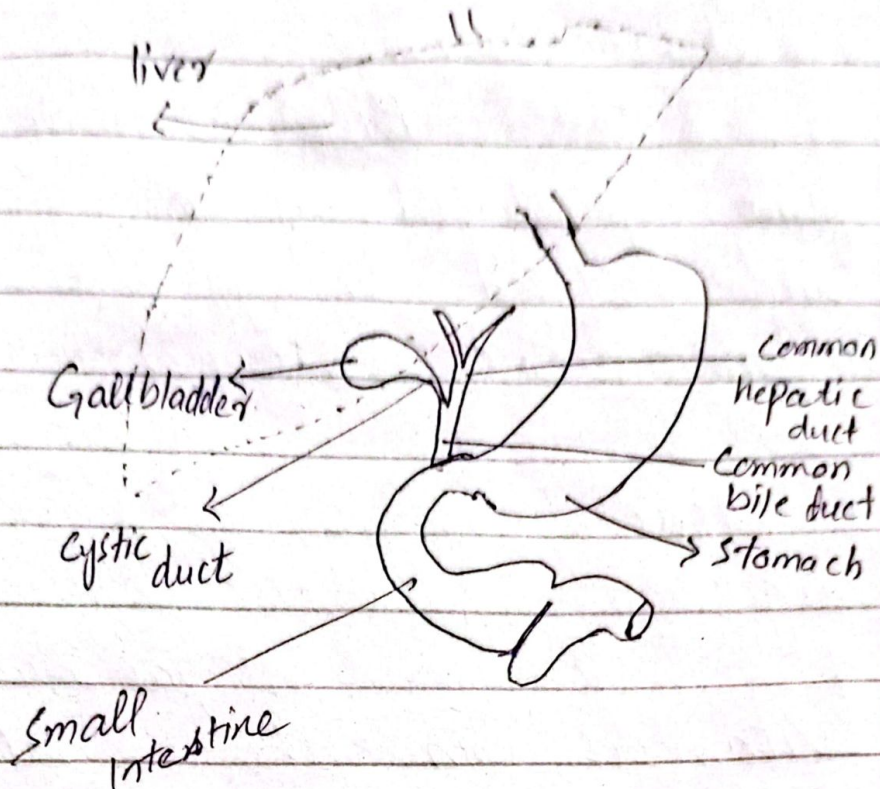 liver
Gallbladder
Common
hepatic
duct
Common
bile duct
Stomach
Cystic
duct
Small
Intestine